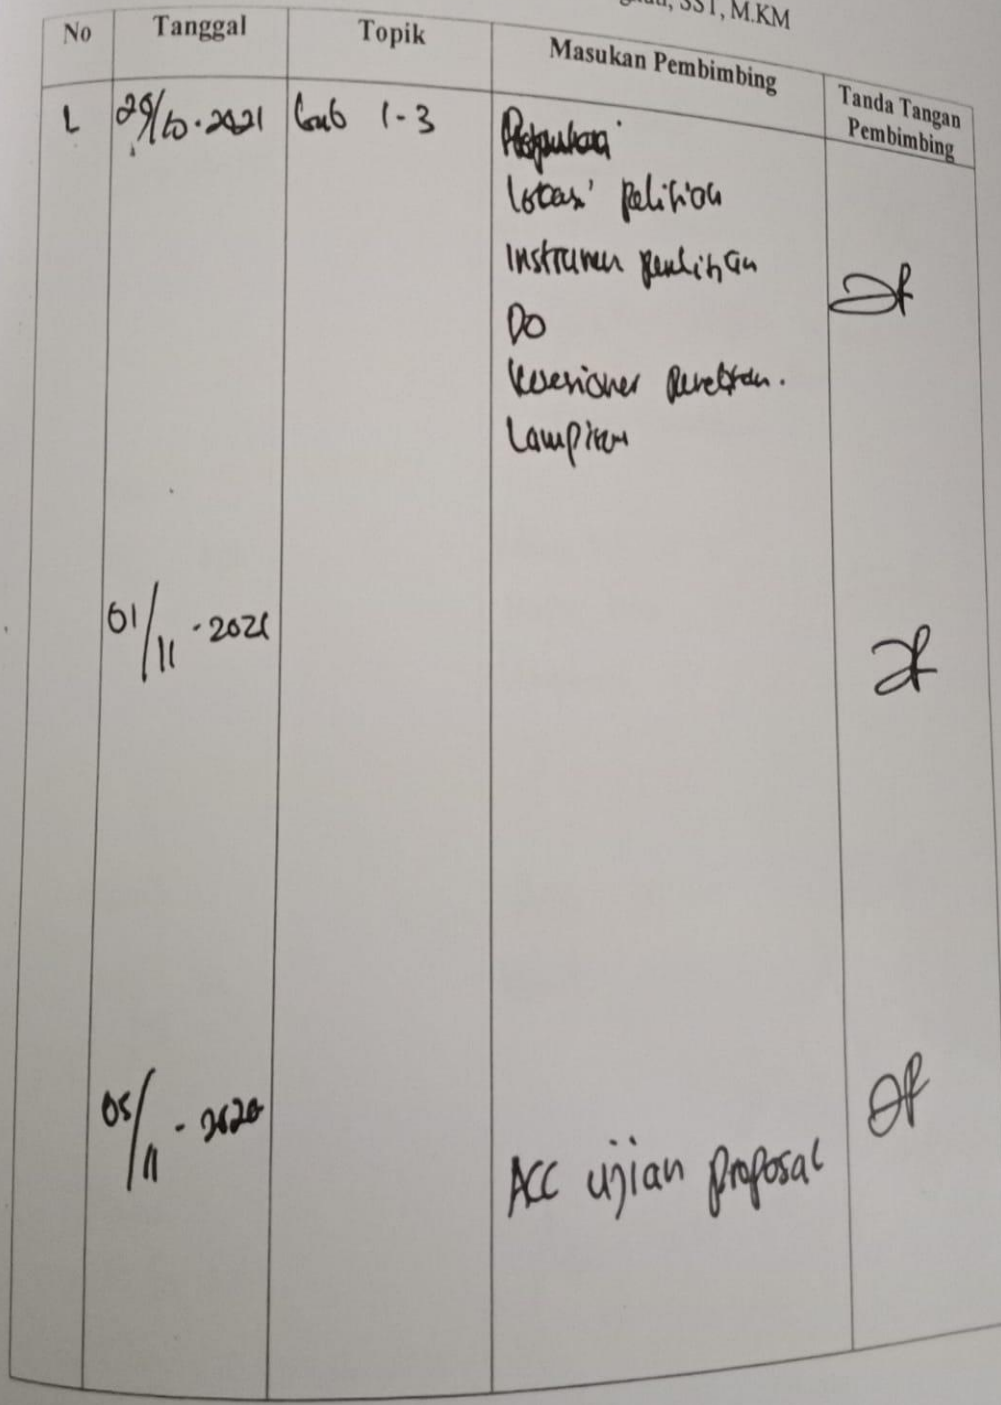 SST, M.KM
No Tanggal Topik Masukan Pembimbing Tanda Tangan Pembimbing
29/10.2021 bab 1-3
lokasi
Instrumen penelitian
DO
Kuesioner
Lampiran
01/11.2021
05/11.
ACC ujian proposal